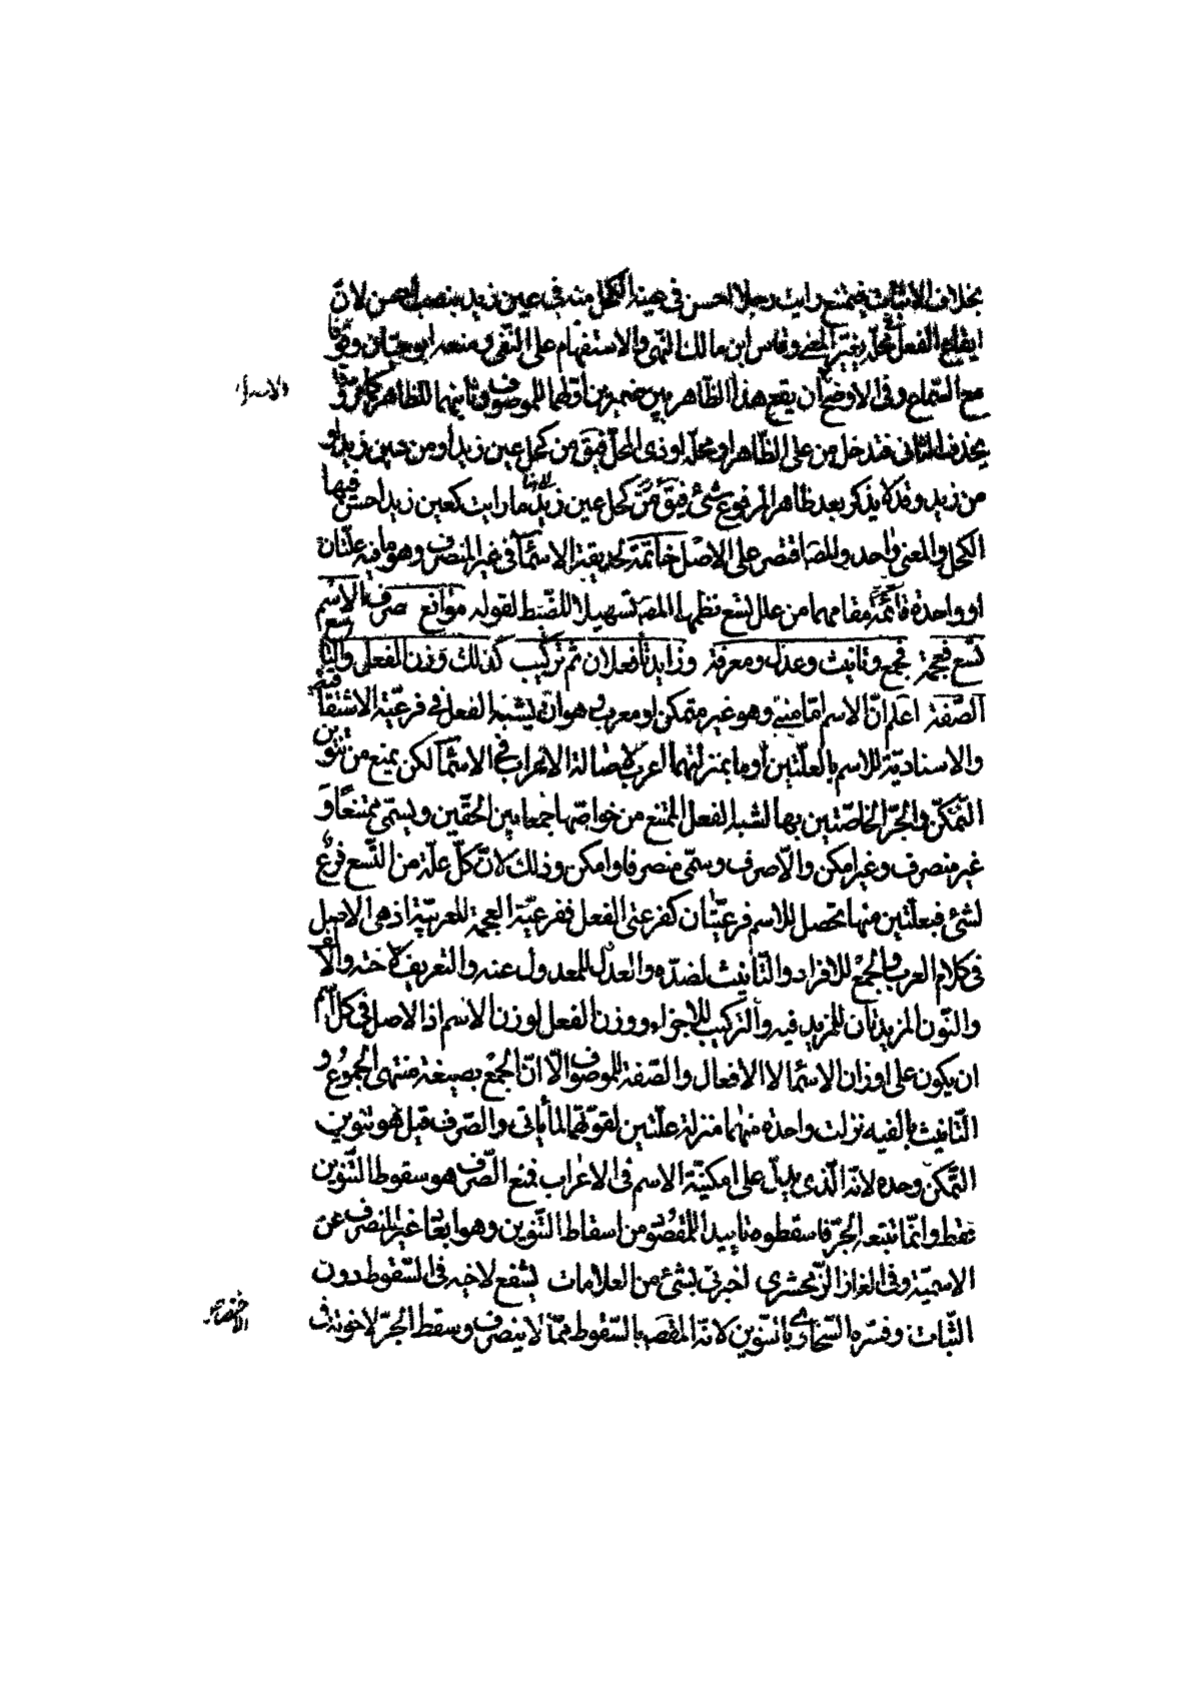 بخلاف الاثبات فيمتنع رايت رجلا احسن في عينه الكحل منه في عين زيد بنصب احسن لانّ
ايقاع الفعل محله يغير المعنى وقاس ابن مالك النهى والاستفهام على النّفى ومنعه ابو حيّان وقوفا
مع السّماع وفى الاوضح ان يقع هذا الظّاهر بين ضميرين اولهما للموصوف وثانيهما للظاهر كما مرّ وقد
يحذف الثانى فتدخل من على الظّاهر او محلّه او ذى المحلّ فيق من كحل عين زيد او من عين زيد او
من زيد وقد لا يذكر بعد ظاهر المرفوع شئ فيق مرّ كحل عين زيد ما رايت كعين زيد احسن فيها
الكحل والمعنى واحد والمصـ اقتصر على الاصل خاتمة لحديقة الاسمآ فى غير المنصرف وهو ما فيه علّتان
او واحدة قائمة مقامهما من علل تسع نظمها المصـ تسهيلا للضّبط لقوله موانع صرف الاسم
تسع فعجمة فجمع وتانيث وعدل ومعرفة وزايدتا فعلان ثم تركيب كذلك وزن الفعل والتاسع
الصّفة اعلم انّ الاسم امّا مبنى وهو غير متمكن او معرب وهو ان يشبه الفعل فى فرعيّته الاشتقاقية
والاسناديّة للاسم بالعلّتين او ما بمنزلتهما اعرب لاصالة الاعراب فى الاسمآ لكن يمنع من تنوين
التّمكّن والجرّ الخاصّتين بها لشبه الفعل الممتنع من خواصّها جمعا بين الحقّين ويسمّى ممتنعًا و
غير منصرف وغير امكن والّا صرف وسمّى منصرفا وامكن وذلك لانّ كلّ علّة من التّسع فرع
لشئ فبعلّتين منها تحصل للاسم فرعيّتان كفرعيتى الفعل ففرعيّة العجمة للعربيّة اذ هى الاصل
فى كلام العرب والجمع للافراد والتّانيث لضدّه والعدل للمعدول عنه والتعريف لاخته والالف
والنّون المزيدتان للمزيد فيه والتركيب للاجزاء ووزن الفعل لوزن الاسم اذ الاصل فى كلّ اسم
ان يكون على اوزان الاسمآ لا الافعال والصّفة للموصوف الّا انّ الجمع بصيغة منتهى الجموع و
التّانيث بالفيه نزلت واحدة منهما منزلة علّتين لقوّتهما لما ياتى والصّرف قيل هو تنوين
التّمكّن وحده لانّه الّذى يدلّ على امكنيّة الاسم فى الاعراب فمنع الصّرف هو سقوط التّنوين
فقط وانّما تبعه الجرّ فاسقطوه تاييدا للمقصود من اسقاط التّنوين وهو ابعاد غير المنصرف عن
الاسميّة وفى الغاز الزّمحشرى اخبرنى بشئ من العلامات يشفع لاخيه فى السّقوط دون
الثّبات وفسّره السّخاوى بالتنّوين لانّه المقصـ بالسّقوط ممّا لا ينصرف وسقط الجرّ لاخوته فى